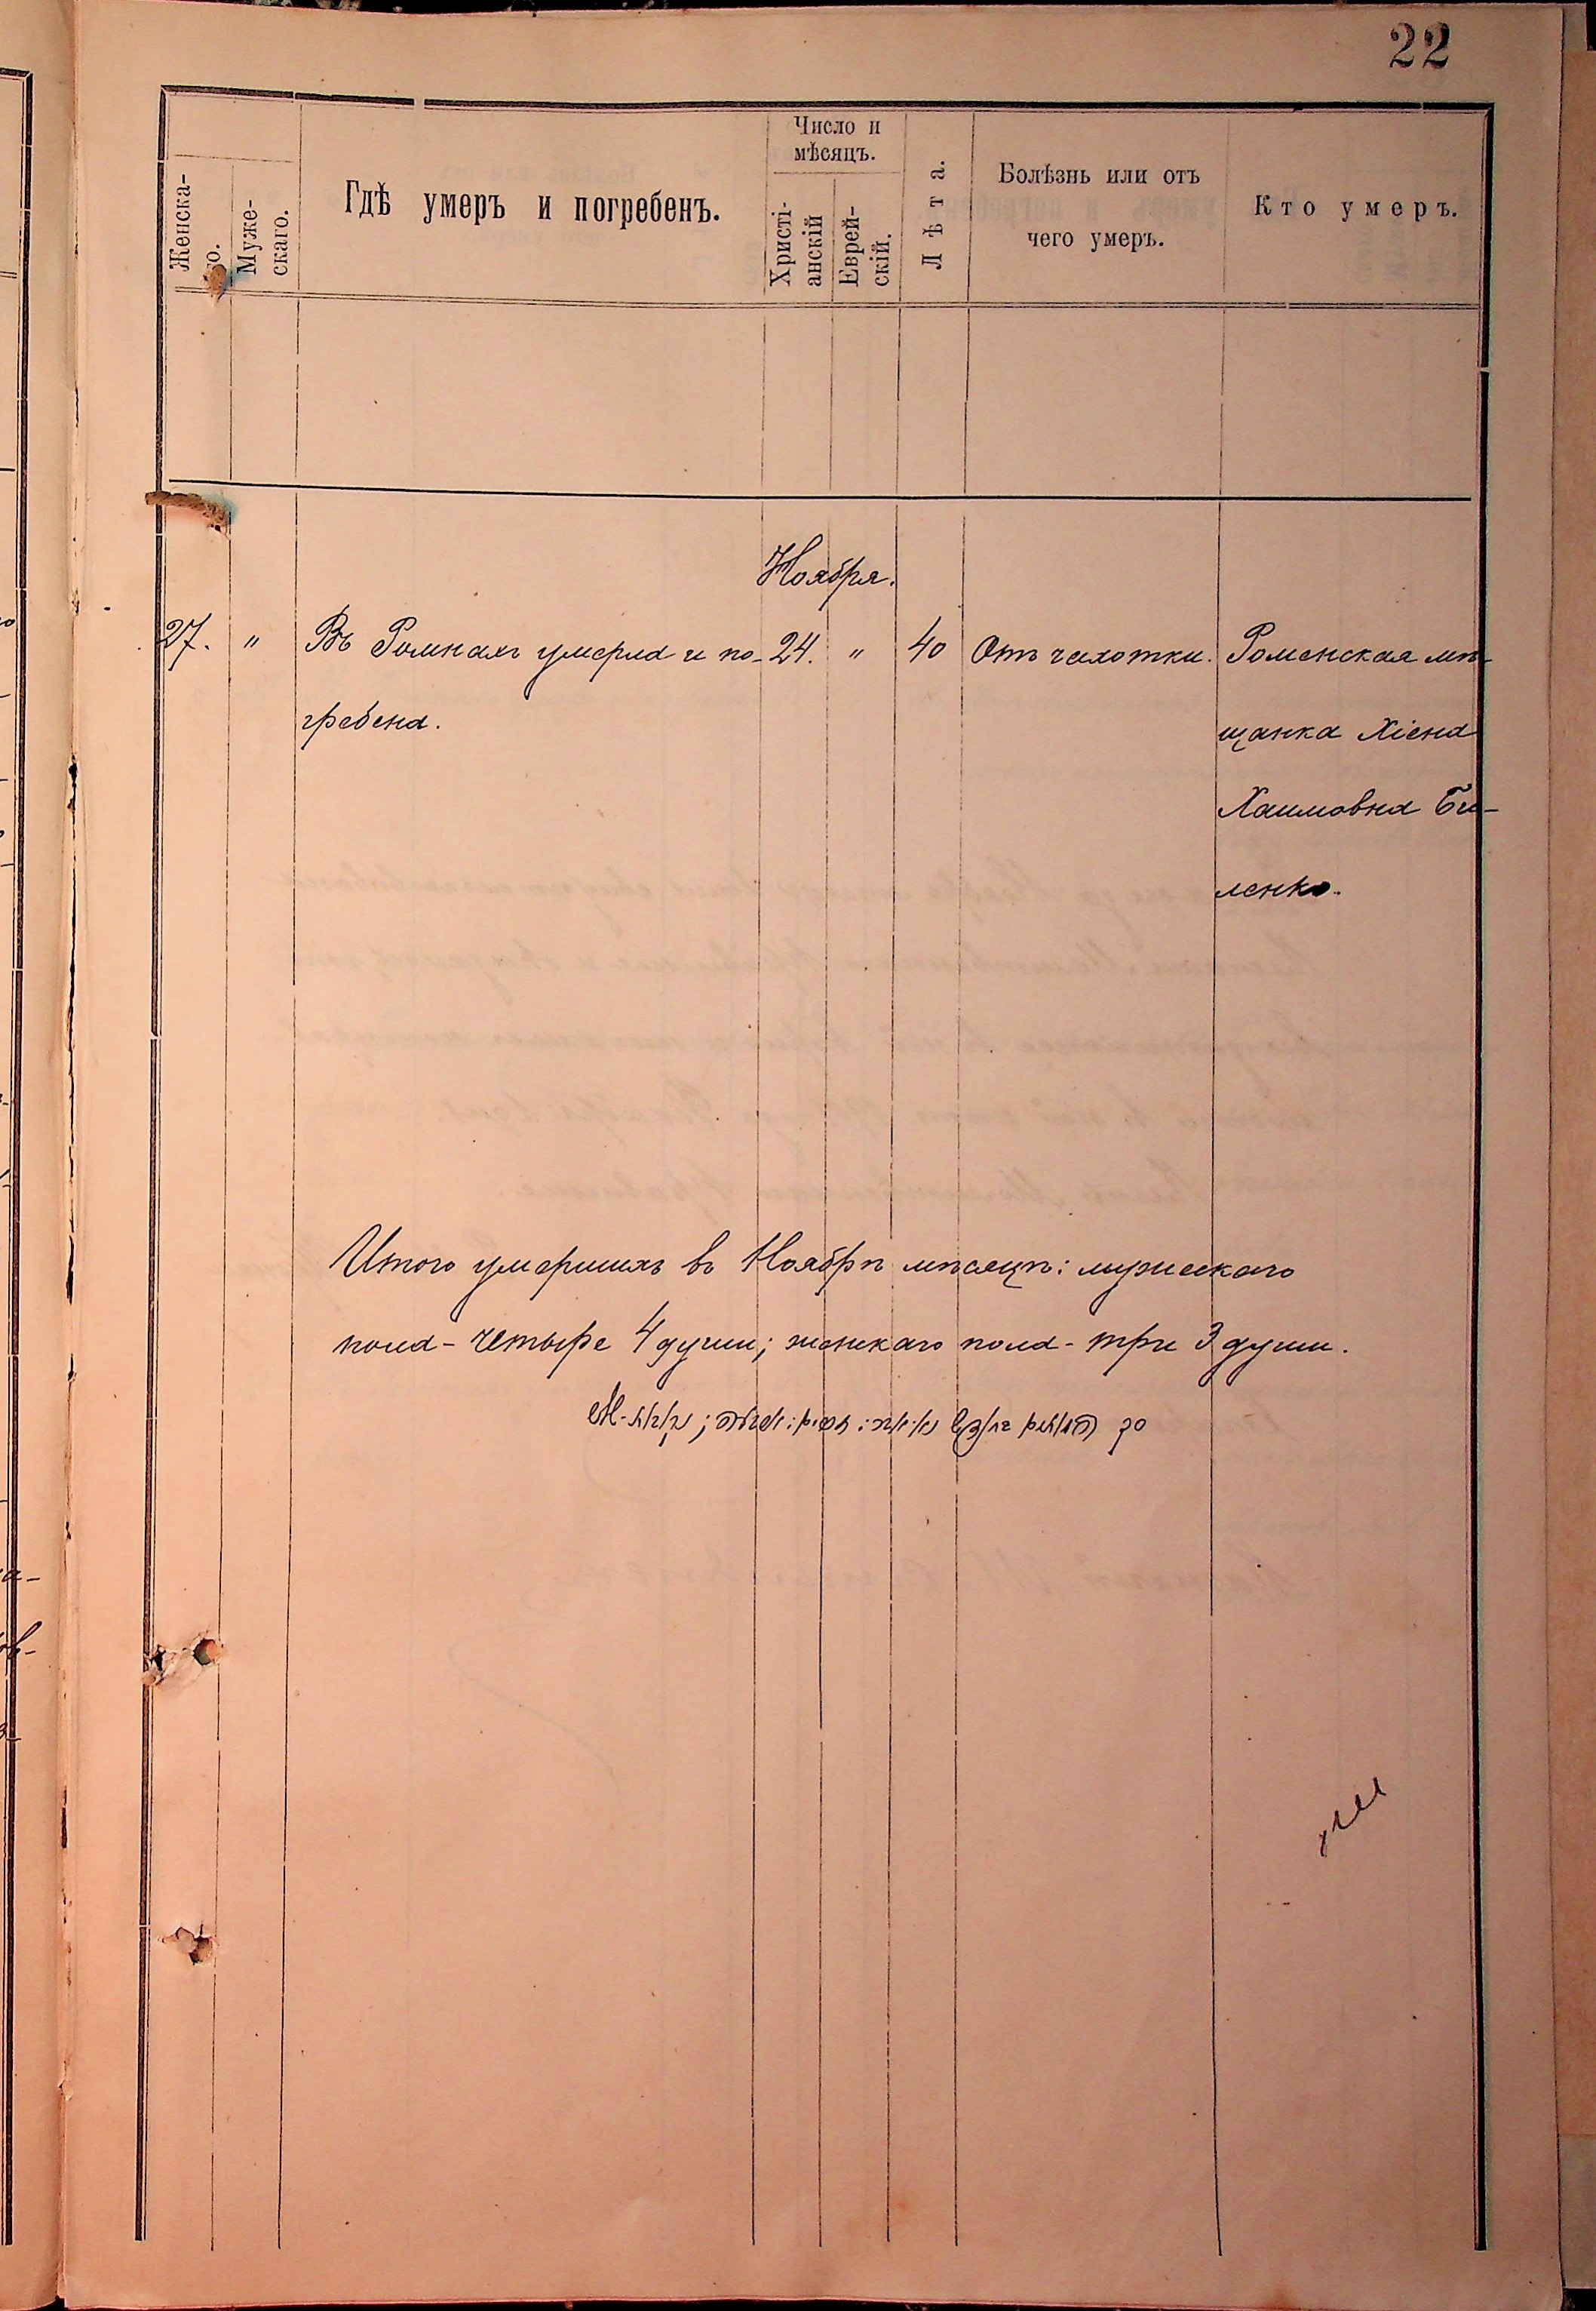 22
Женска-
го.
Муже-
скаго.
Гдѣ умеръ и погребенъ.
Число и
мѣсяцъ.
Христі-
анскій
Еврей-
скій.
Лѣта.
Болѣзнь или отъ
чего умеръ.
Кто умеръ.
Ноября.
27. " Въ Ромнахъ умерла и по- 24. " 40 Отъ чахотки. Роменская мѣ-
гребена.
щанка Хіена
Хаимовна Би-
ленко.
Итого умершихъ въ Ноябрѣ мѣсяцѣ: мужескаго
пола - четыре 4 души; женскаго пола - три 3 души.